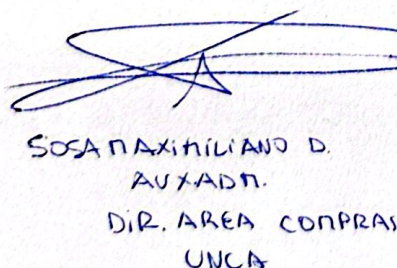 SOSA MAXIMILIANO D.
AUXADM.
DIR. AREA COMPRAS
UNCA